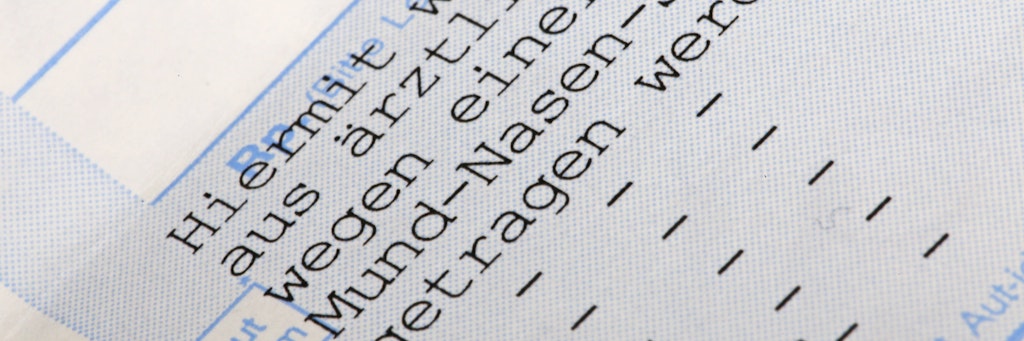 Rp. (Bitte L
Hiermit w
aus ärztl
wegen eine
Mund-Nasen-
getragen werd
- - - - -
- - - -
- -
ut
m
Aut-i